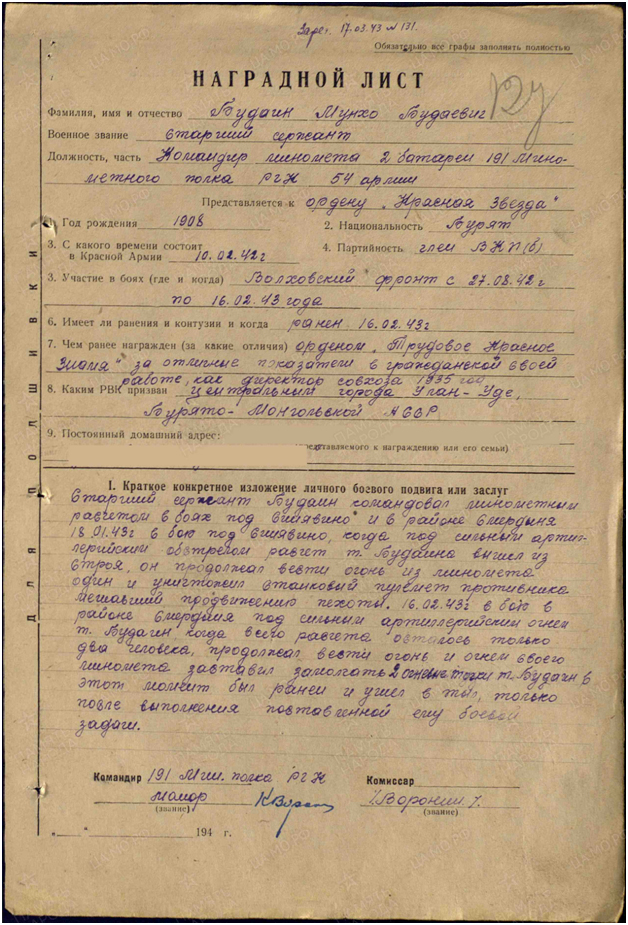 Зарег. 17.03.43 № 131.
Обязательно все графы заполнять полностью
НАГРАДНОЙ ЛИСТ
Фамилия, имя и отчество Будаин Мунхо Будаевич
Военное звание Старший сержант
Должность, часть Командир миномета 2 батареи 191 Мино-
метного полка РГК 54 армии
Представляется к ордену „Красная Звезда"
1. Год рождения 1908 2. Национальность Бурят
3. С какого времени состоит
в Красной Армии 10.02.42г 4. Партийность член ВКП(б)
5. Участие в боях (где и когда) Волховский фронт с 27.08.42г
по 16.02.43 года
6. Имеет ли ранения и контузии и когда ранен 16.02.43г
7. Чем ранее награжден (за какие отличия) орденом „Трудовое Красное
Знамя" за отличные показатели в гражданской своей
работе, как директор совхоза 1935 год
8. Каким РВК призван Центральным города Улан-Уде,
Бурято-Монгольской АССР
9. Постоянный домашний адрес:
представляемого к награждению или его семьи)
I. Краткое конкретное изложение личного боевого подвига или заслуг
Старший сержант Будаин командовал минометным
расчетом в боях под Синявино и в районе Смердыня
18.01.43г в бою под Синявино, когда под сильным артил-
лерийским обстрелом расчет т. Будаина вышел из
строя, он продолжал вести огонь из миномета
один и уничтожил станковый пулемет противника
мешавший продвижению пехоты. 16.02.43г в бою в
районе Смердыня под сильным артиллерийским огнем
т. Будаин когда всего расчета осталось только
два человека, продолжал вести огонь и огнем своего
миномета заставил замолчать 2 огнев. точки т. Будаин в
этот момент был ранен и ушел в тыл, только
после выполнения поставленной ему боевой
задачи.
Командир 191 Мин. полка РГК Комиссар
Майор /Воронин /.
(звание) (звание)
„ " 194 г.
Для подшивки